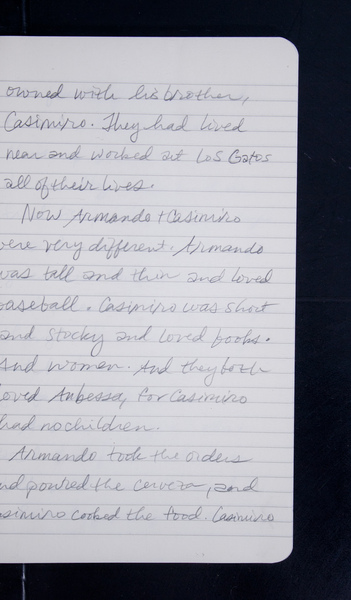 owned with his brother,
Casimiro. They had lived
near and worked at Los Gatos
all of their lives.
Now Armando + Casimiro
ere very different. Armando
was tall and thin and loved
baseball. Casimiro was short
and stocky and loved books.
And women. And they both
oved Anbessa, for Casimiro
had no children.
Armando took the orders
nd poured the cerveza, and
asimiro cooked the food. Casimiro